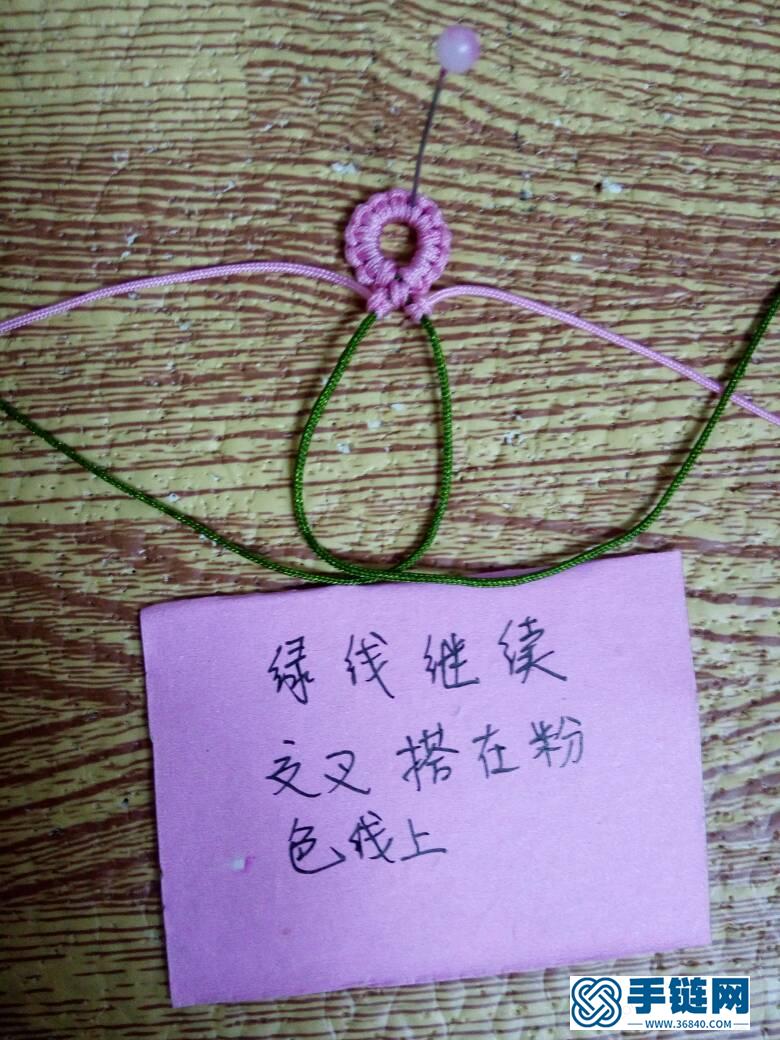 绿线继续
交叉搭在粉
色线上
手链网
www.36840.com